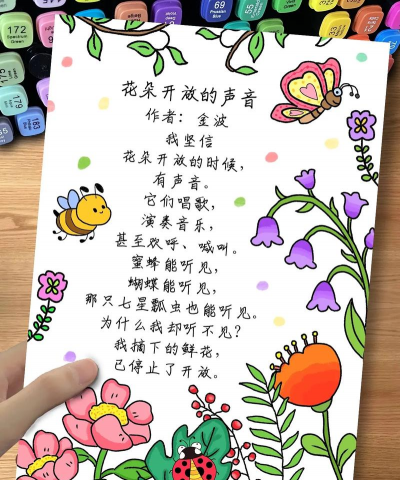 172
Spectrum
Green
69
Prussian
Blue
花朵开放的声音
作者：金波
我坚信
花朵开放的时候，
有声音。
它们唱歌，
演奏音乐，
甚至欢呼、喊叫。
蜜蜂能听见，
蝴蝶能听见，
那只七星瓢虫也能听见。
为什么我却听不见？
我摘下的鲜花，
已停止了开放。